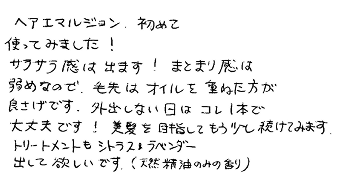 ヘアエマルジョン、初めて
使ってみました！
サラサラ感は出ます！まとまり感は
弱めなので、毛先はオイルを重ねた方が
良さげです。外出しない日はコレ1本で
大丈夫です！美髪を目指してもう少し続けてみます。
トリートメントもシトラス&ラベンダー
出して欲しいです。(天然精油のみの香り)